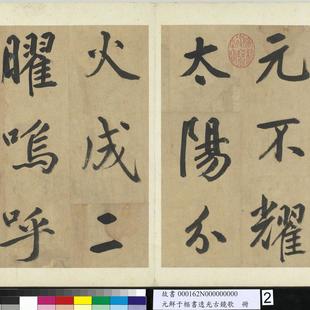 元不耀
太陽分
火成二
曜嗚呼
故書 000162N000000000
元鮮于樞書透光古鏡歌 冊
2